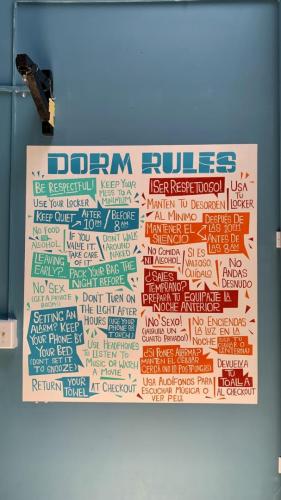 DORM RULES
BE RESPECTFUL!
KEEP YOUR
MESS TO A
MINIMUM
USE YOUR LOCKER
KEEP QUIET
AFTER
10PM
BEFORE
8AM
NO FOOD
ALCOHOL
IF YOU
VALUE IT,
TAKE CARE
OF IT
DON'T WALK
AROUND
NAKED
LEAVING
EARLY?
PACK YOUR BAG THE
NIGHT BEFORE
NO SEX
(GET A PRIVATE
ROOM!)
DON'T TURN ON
THE LIGHT AFTER
HOURS
USE YOUR
PHONE OR
TORCH
SETTING AN
ALARM? KEEP
YOUR PHONE BY
YOUR BED
(DON'T SET IT
TO SNOOZE)
USE HEADPHONES
TO LISTEN TO
MUSIC OR WATCH
A MOVIE
RETURN
YOUR
TOWEL
AT CHECKOUT
¡SER RESPETUOSO!
USA
TU
LOCKER
MANTEN TU DESORDEN
AL MINIMO
MANTENER EL
SILENCIO
DESPUÉS DE
LAS 10PM
ANTES DE
LAS 8AM
NO COMIDA
NI ALCOHOL
SI ES
VALIOSO
CUÍDALO
NO
ANDAS
DESNUDO
¿SALES
TEMPRANO?
PREPARA TU EQUIPAJE LA
NOCHE ANTERIOR
NO SEXO!
CUARTO PRIVADO!)
NO ENCIENDAS
LA LUZ EN LA
NOCHE
¿SI PONES ALARMA?
MANTEN EL CELULAR
CERCA
USA AUDÍFONOS PARA
ESCUCHAR MÚSICA O
VER PELI
DEVUELVA
TU
TOALLA
AL CHECKOUT